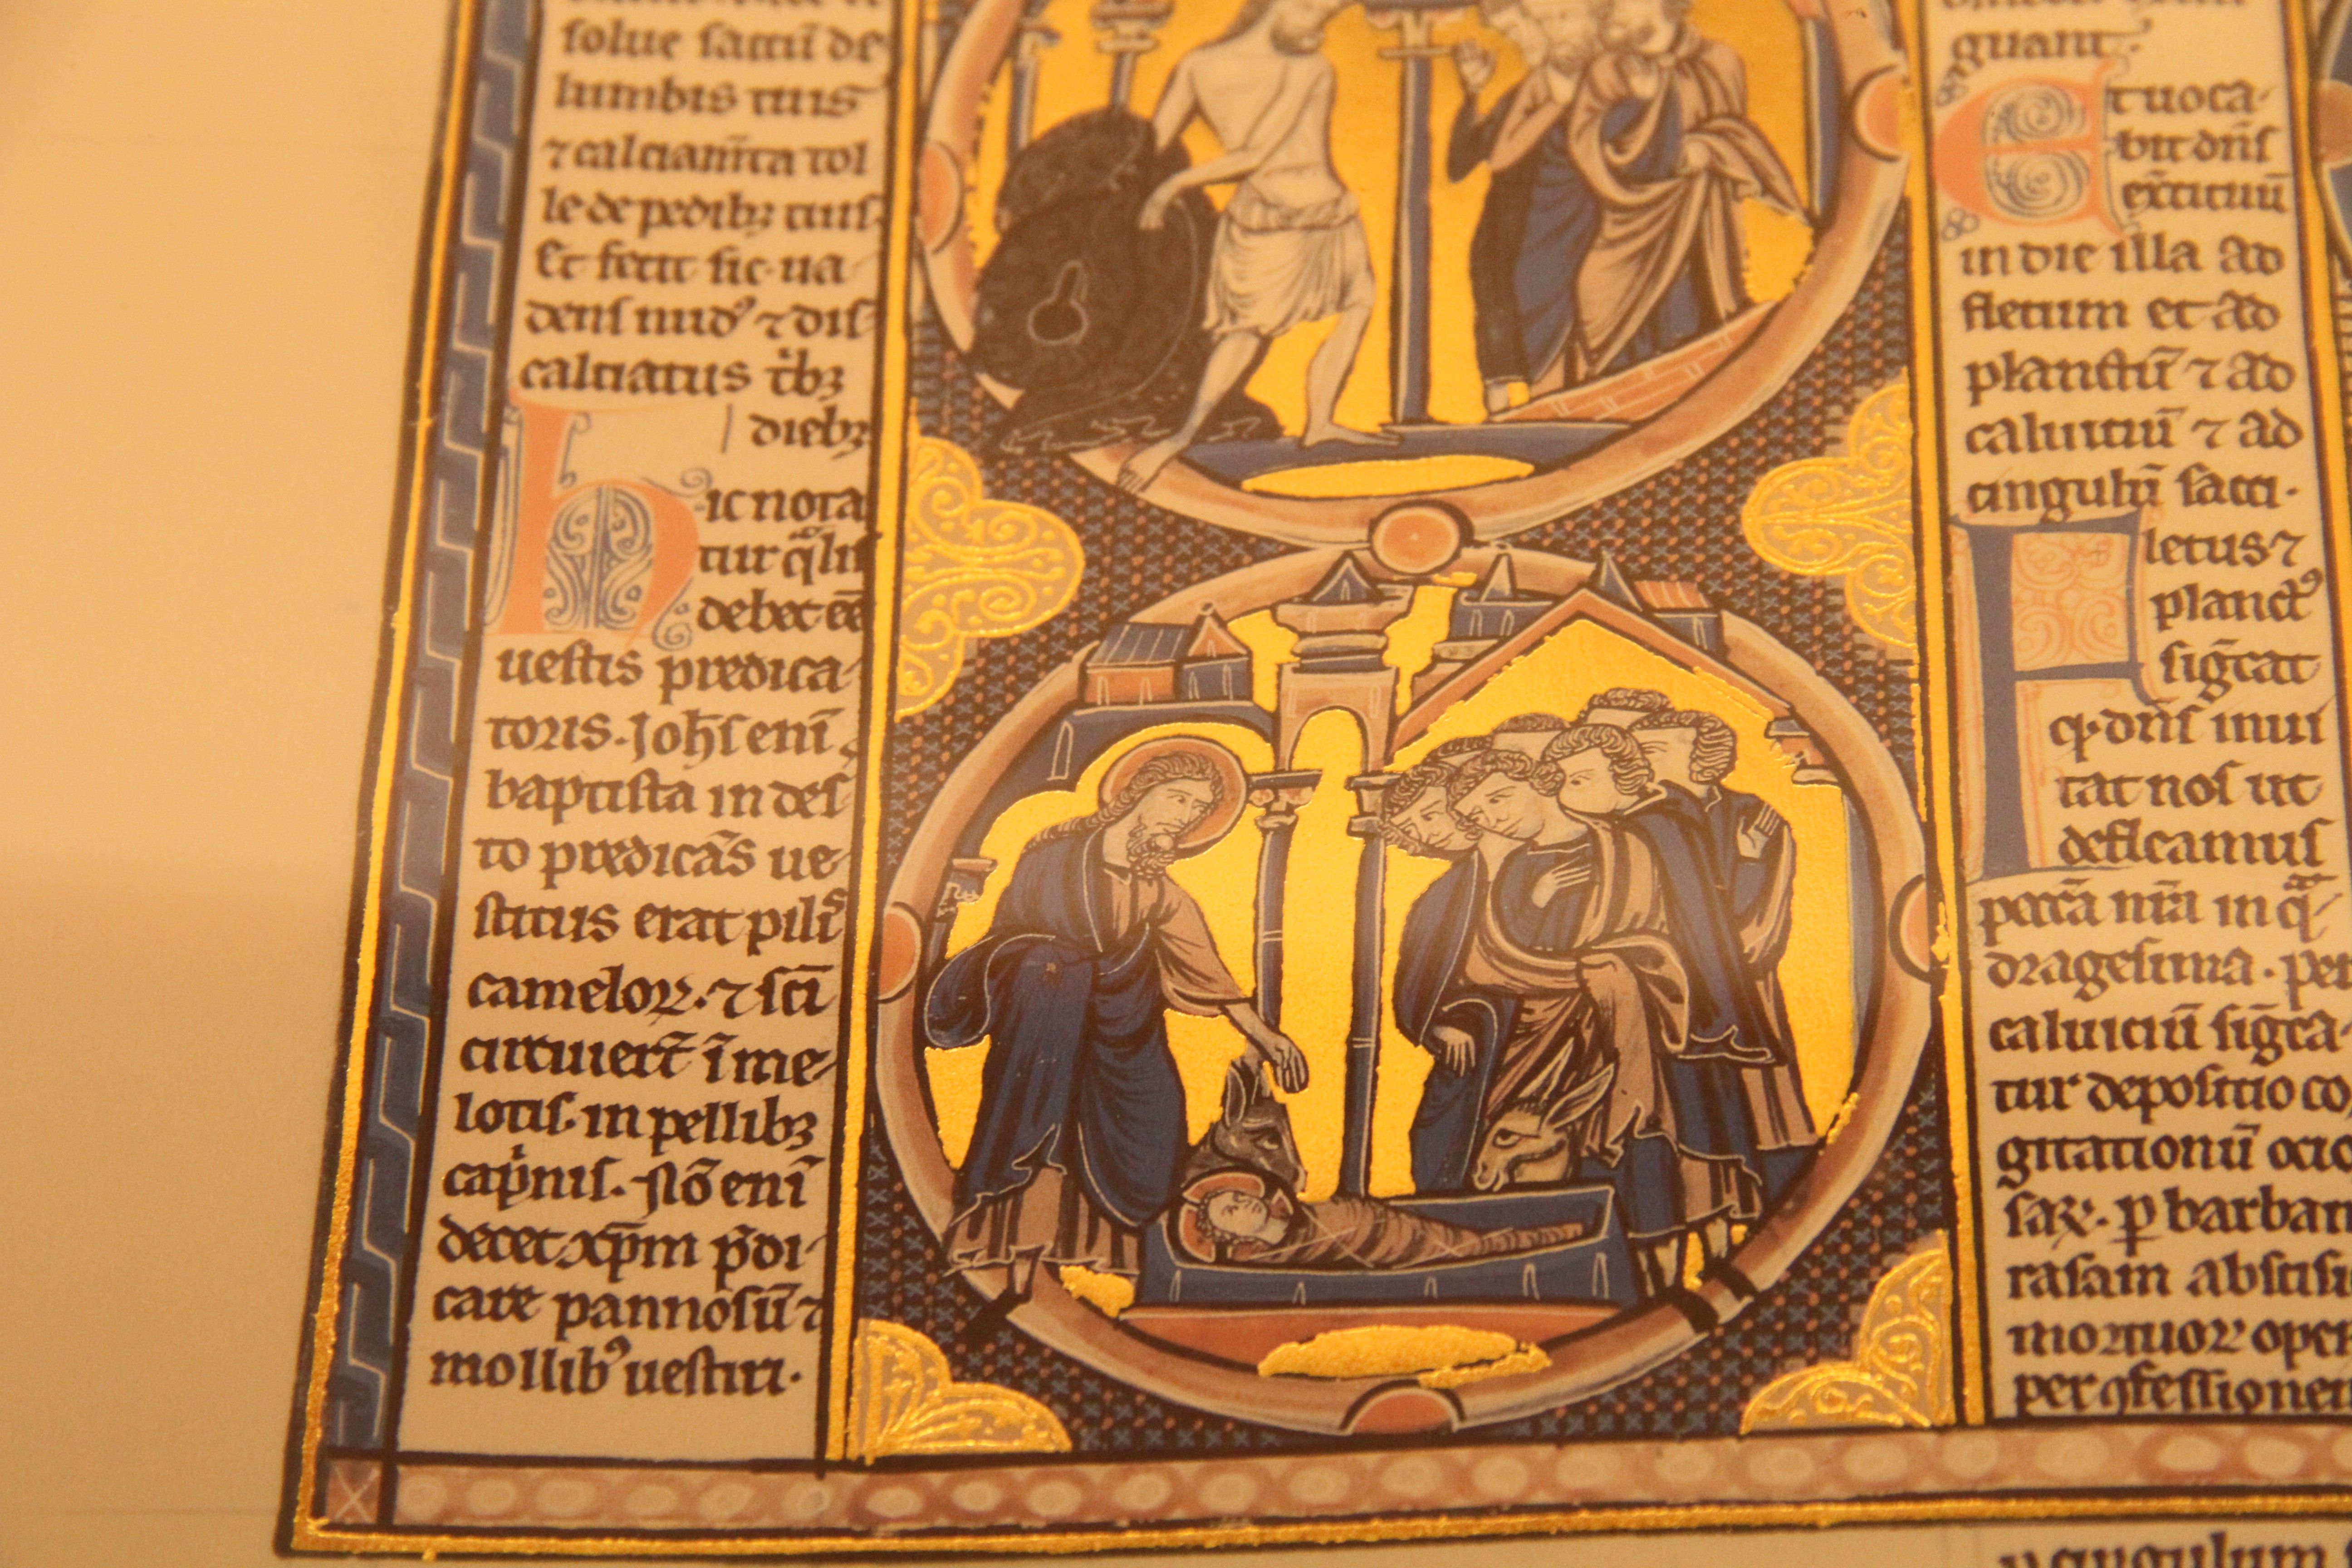 solue saccū de
lumbis tuis
⁊ calciam̄ta tol
le de pedibꝫ tuis.
Et fecit sic ua
dens nudꝰ ⁊ dis
calciatus tͥbꝫ
diebꝫ
hic nota
tur q̄lis
debet eē
uestis predica
toris. Joh̄s enī
baptista in des
to predicās ue
stitus erat pilis
cameloꝝ. ⁊ sc̄i
circuiert̄ ī me
lotis. in pellibꝫ
cap̍nis. Nō enī
decet xp̄m p̄di
care pannosū ⁊
mollibꝰ uestiri.
guant.
Et uoca
bit dn̄s
exʼcituū
in die illa ad
fletum et ad
planctū ⁊ ad
caluiciū ⁊ ad
cingulū sacci.
Fletus ⁊
planctꝰ
sigͨcat
ꝙ dn̄s inui
tat nos ut
defleamus
pctā nr̄a in q̄
dragesima. per
caluiciū sigͨca
tur depositio co
gitationū ocio
saꝝ. ꝑ barbam
rasam abscisi
mortuoꝝ oper
per ꝯfessionem
cingulum